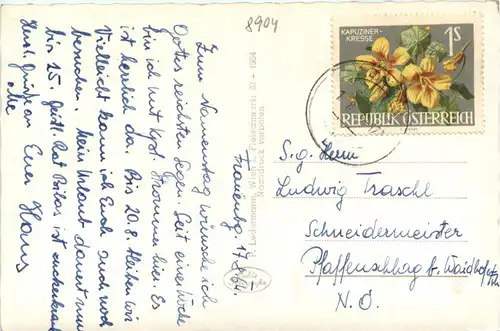 8904
KAPUZINER-
KRESSE
1S
REPUBLIK ÖSTERREICH
Frauenbg. 17.8.64.
Zum Namenstag wünsche ich
Gottes reichsten Segen. Seit einer Woche
bin ich mit hier. Es
ist herrlich da. Bis 20.8. bleiben wir.
Vielleicht kann ich Euch auch noch
besuchen. Mein Urlaub dauert nur
bis 15. Geistl. Rat ist
Herzl. Grüße an Euer Hans
alle
Wien
Nachdruck Verboten
S.g. Herrn
Ludwig Traschl
Schneidermeister
Pfaffenschlag b. Waidhofen
N.Ö.